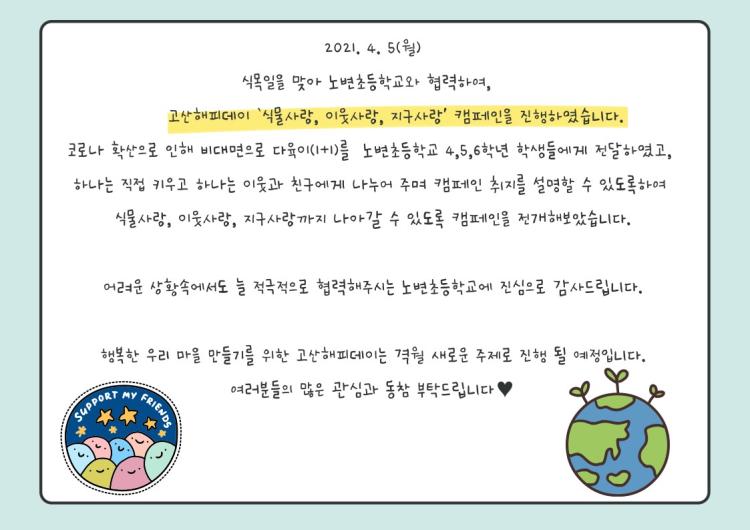 2021. 4. 5(월)
식목일을 맞아 노변초등학교와 협력하여,
고산해피데이 '식물사랑, 이웃사랑, 지구사랑' 캠페인을 진행하였습니다.
코로나 확산으로 인해 비대면으로 다육이(1+1)를 노변초등학교 4,5,6학년 학생들에게 전달하였고,
하나는 직접 키우고 하나는 이웃과 친구에게 나누어 주며 캠페인 취지를 설명할 수 있도록하여
식물사랑, 이웃사랑, 지구사랑까지 나아갈 수 있도록 캠페인을 전개해보았습니다.
어려운 상황속에서도 늘 적극적으로 협력해주시는 노변초등학교에 진심으로 감사드립니다.
행복한 우리 마을 만들기를 위한 고산해피데이는 격월 새로운 주제로 진행 될 예정입니다.
여러분들의 많은 관심과 동참 부탁드립니다♥
SUPPORT MY FRIENDS